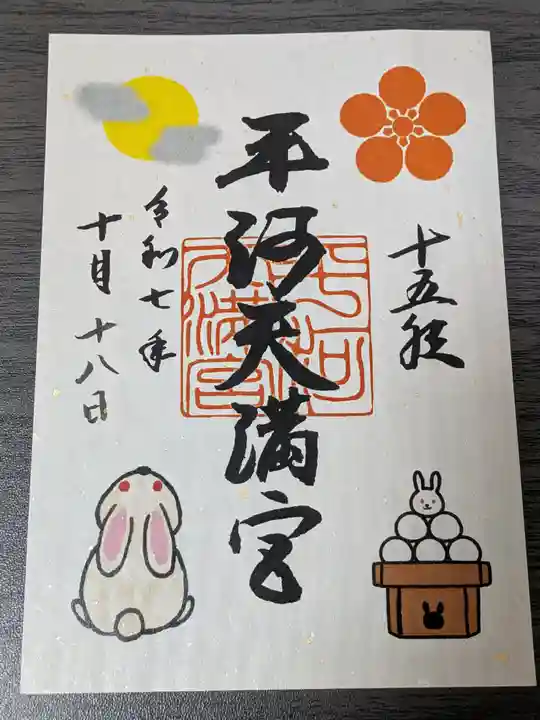 十五夜
平河天満宮
令和七年
十月十八日
平河
天満宮